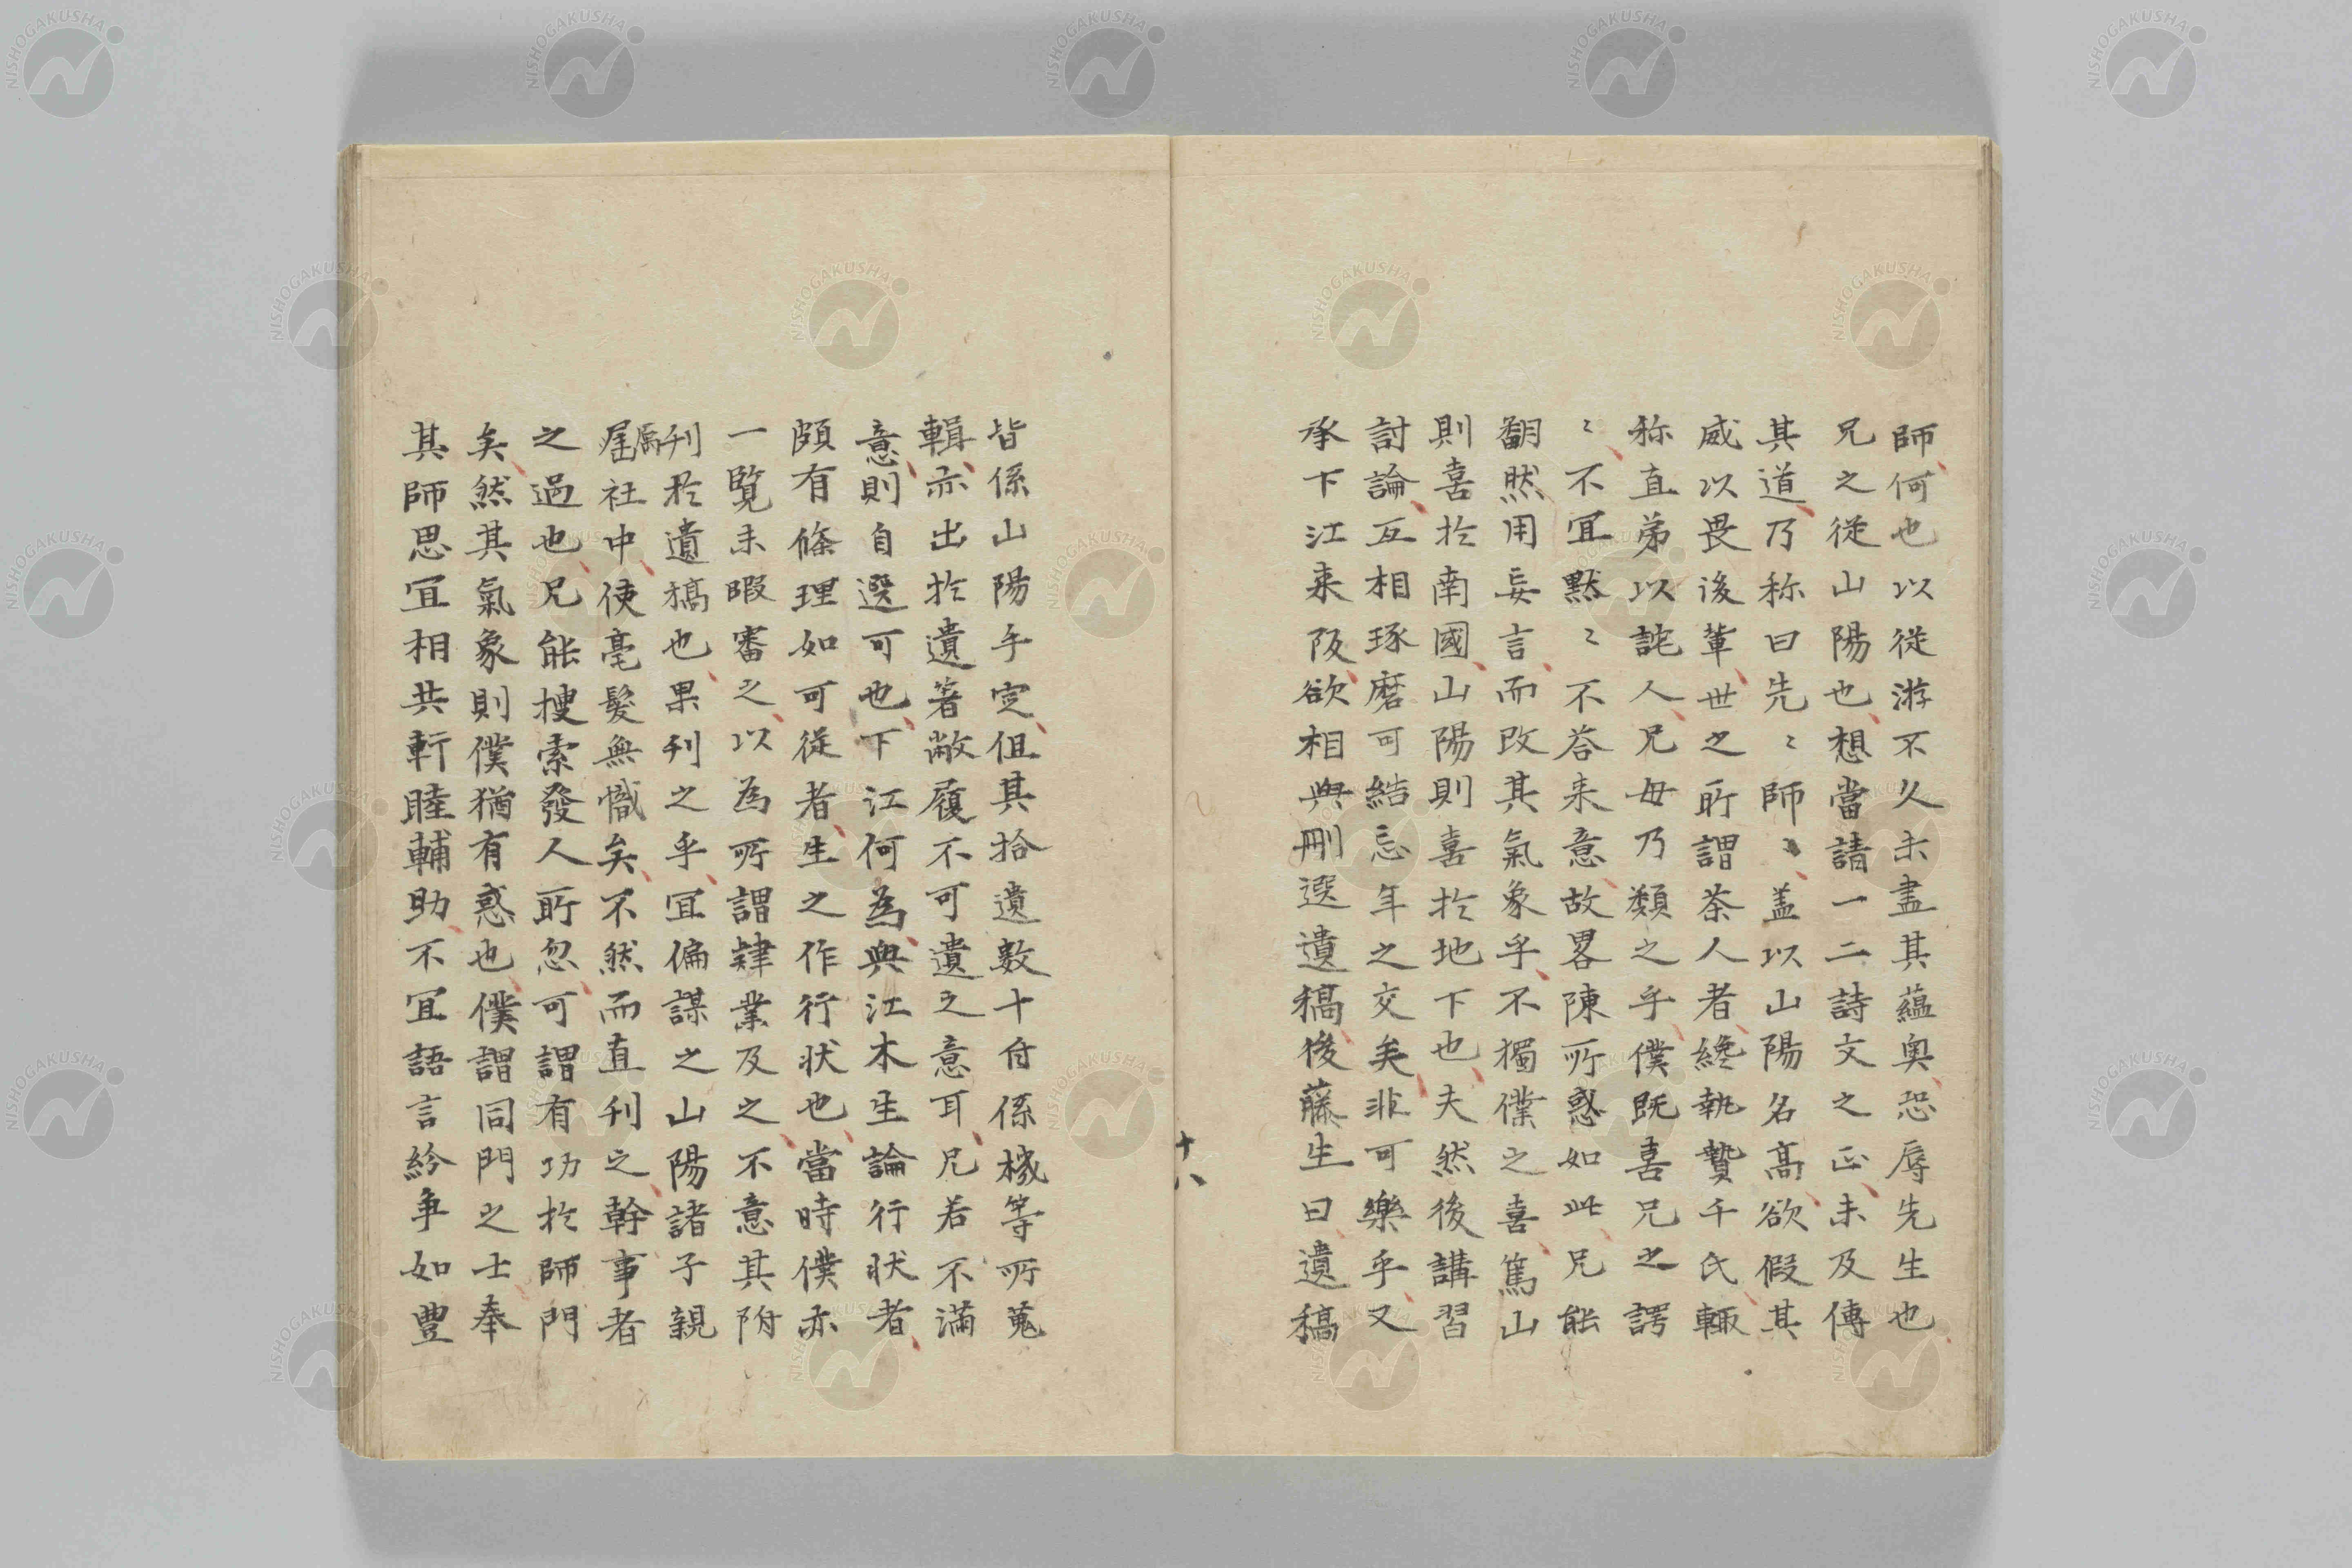 師何也以從游不久未盡其蘊奧恐辱先生也
兄之從山陽也想當請一二詩文之正未及傳
其道乃称曰先〻師〻蓋以山陽名高欲假其
威以畏後輩世之所謂茶人者纔執贄千氏輙
称直弟以詫人兄毋乃類之乎僕既喜兄之諤
〻不宜黙〻不荅来意故畧陳所惑如此兄能
翻然用妄言而改其氣象乎不獨僕之喜篤山
則喜於南國山陽則喜於地下也夫然後講習
討論互相琢磨可結忘年之交矣非可樂乎又
承下江来阪欲相與刪選遺稿後藤生曰遺稿
十八
皆係山陽手定但其拾遺數十首係機等所蒐
輯亦出於遺著敝履不可遺之意耳兄若不滿
意則自選可也下江何為與江木生論行状者
頗有條理如可從者生之作行状也當時僕亦
一覽未暇審之以為所謂肄業及之不意其附
刊於遺稿也果刊之乎宜偏謀之山陽諸子親
屬社中使毫髮無憾矣不然而直刊之幹事者
之過也兄能搜索發人所忽可謂有功於師門
矣然其氣象則僕猶有惑也僕謂同門之士奉
其師思宜相共軒睦輔助不宜語言紛争如豊
NISHOGAKUSHA